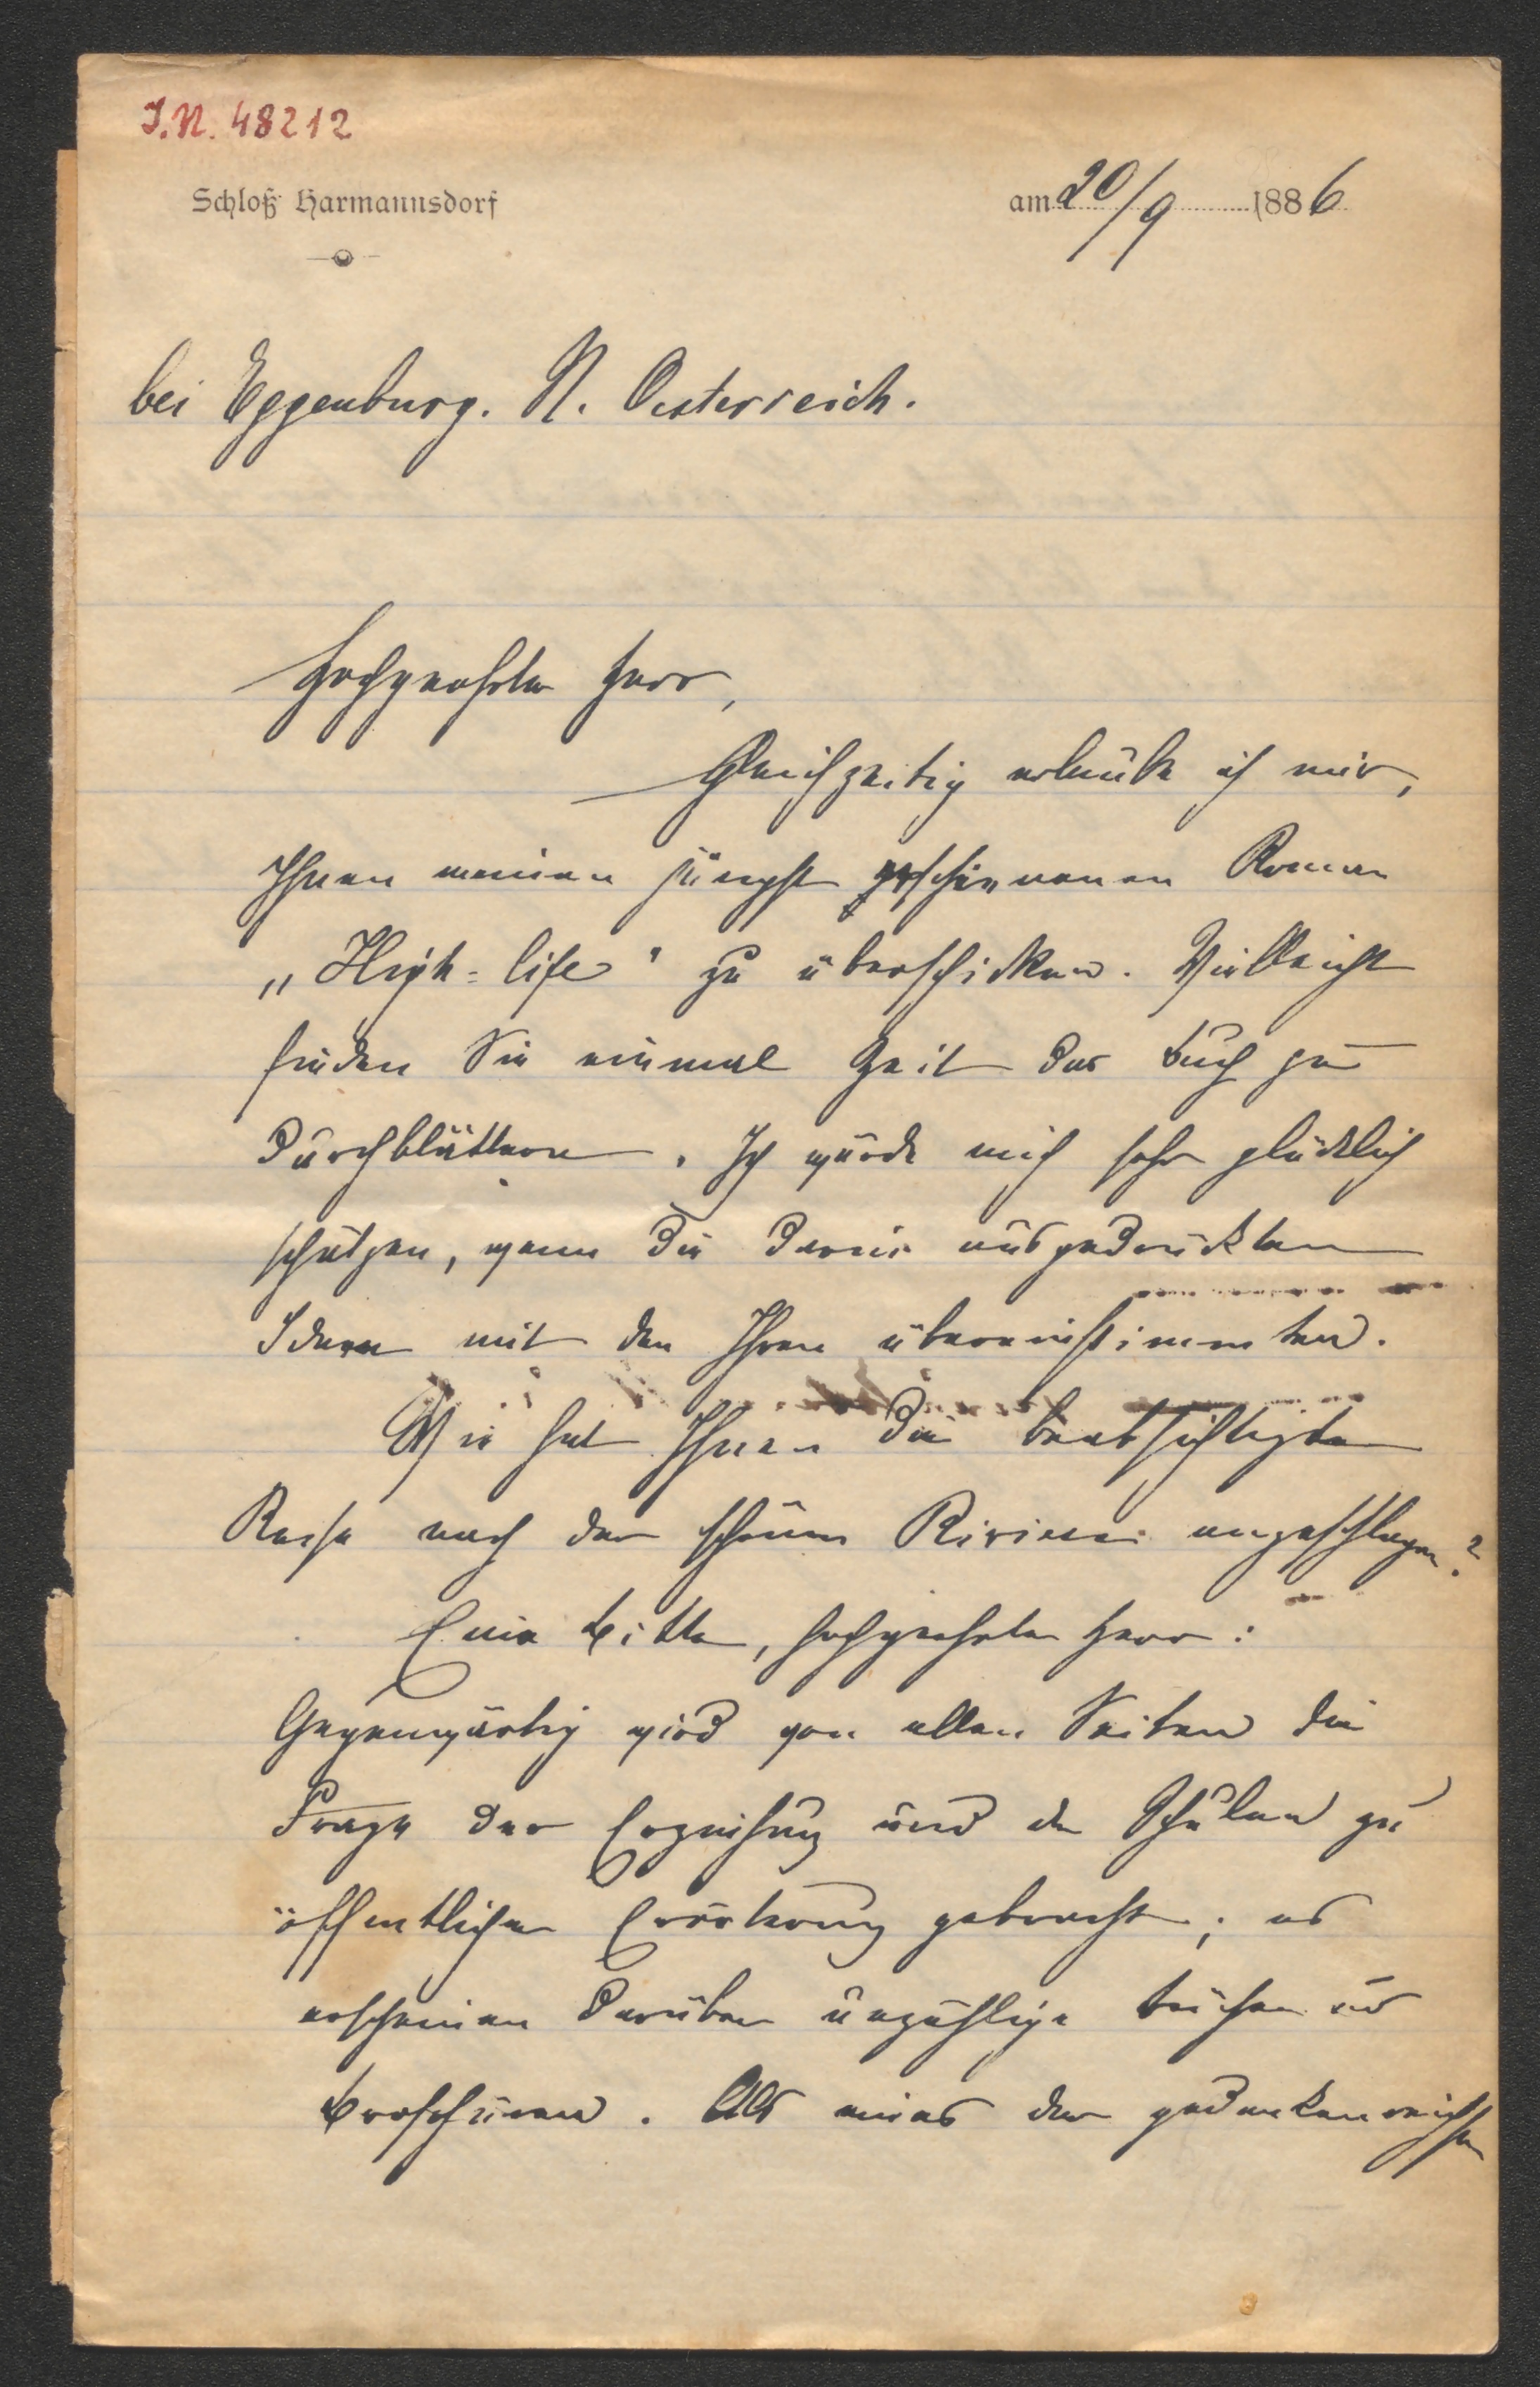 I.N. 48212
Schloß Harmannsdorf
am 20/9 1886
bei Eggenburg. N. Oesterreich.
Hochgeehrter Herr,
Gleichzeitig erlaube ich mir,
Ihnen meinen jüngst erschienenen Roman
„High-life" zu überschicken. Vielleicht
finden Sie einmal Zeit das Buch zu
durchblättern. Ich würde mich sehr glücklich
schätzen, wenn die darin ausgedrückten
Ideen mit den Ihren übereinstimmten.
Wie hat Ihnen die beabsichtigte
Reise nach der schönen Riviera angeschlagen?
Eine Bitte, hochgeehrter Herr:
Gegenwärtig wird von allen Seiten die
Frage der Erziehung und der Schulen zu
öffentlicher Erörterung gebracht; es
erscheinen darüber unzählige Bücher und
Broschüren. Als eines der gedankenreichsten